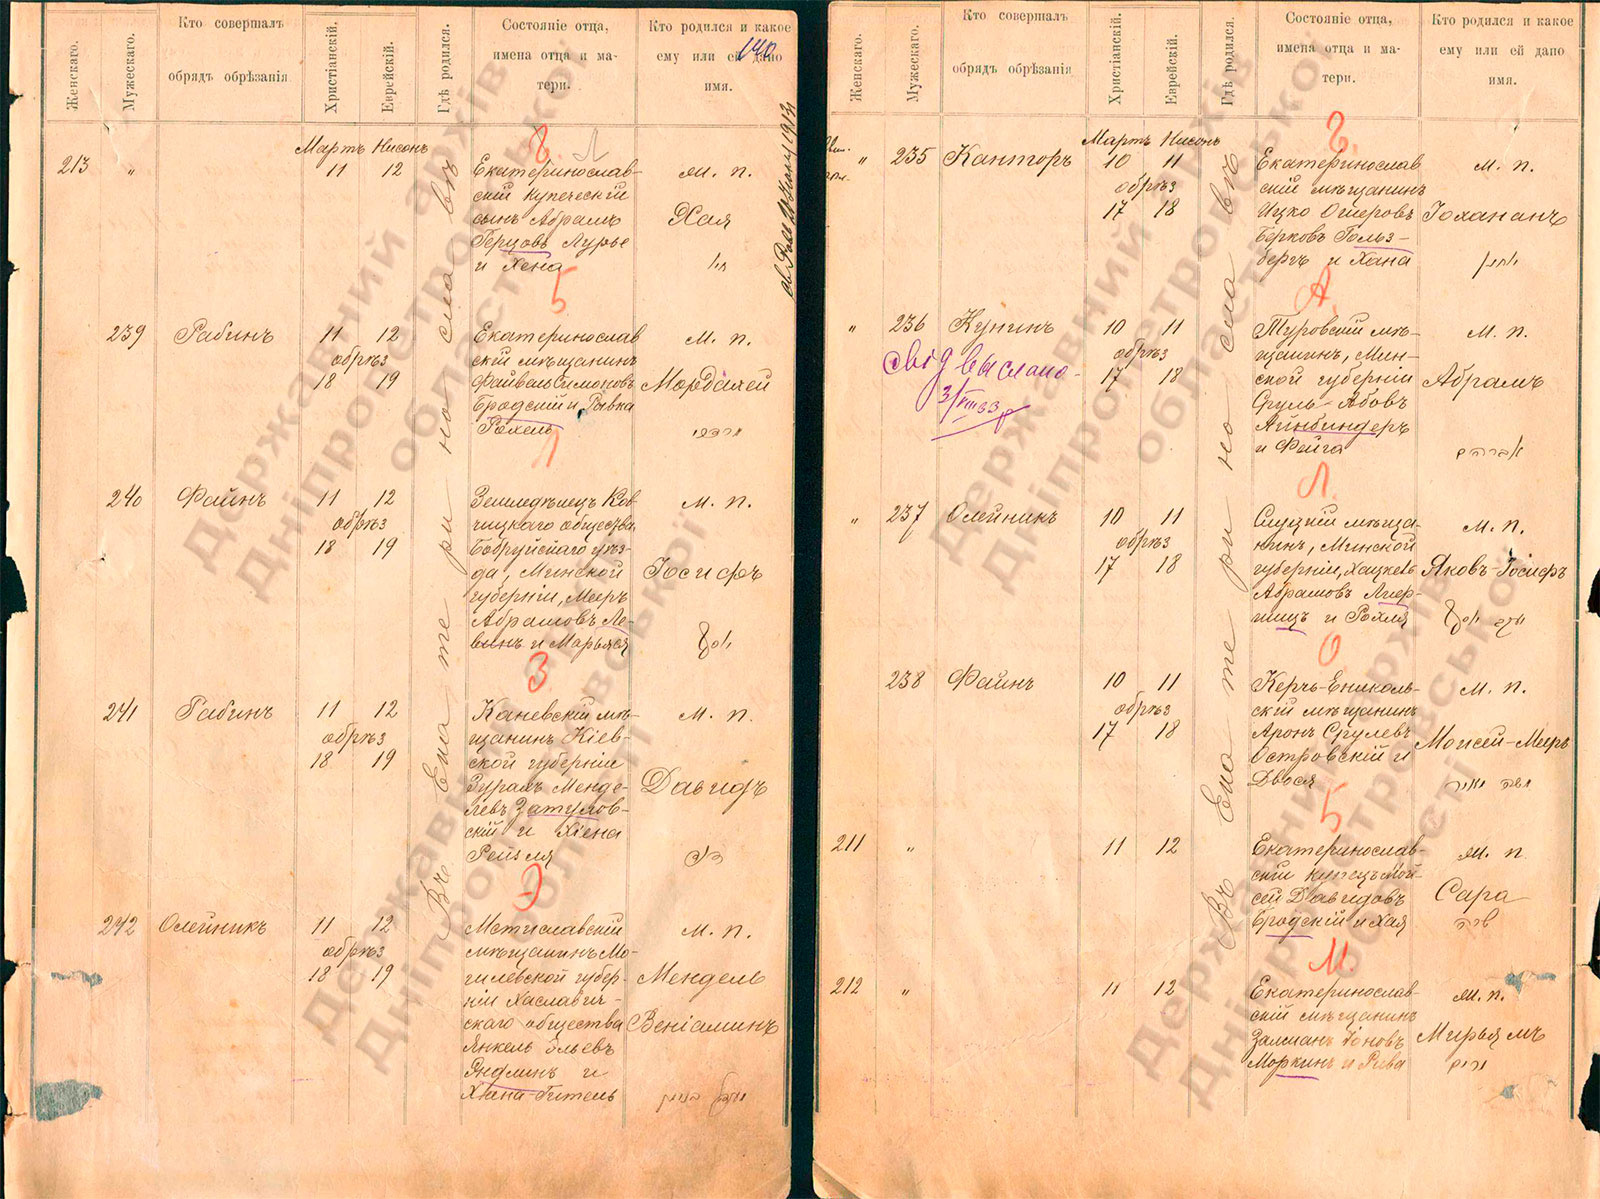 Женскаго.
Мужескаго.
Кто совершалъ
обрядъ обрѣзанія
Христіанскій.
Еврейскій.
Гдѣ родился.
Состояніе отца,
имена отца и ма-
тери.
Кто родился и какое
ему или ей дано
имя.
140
Въ Екатеринославѣ
Мартъ Нисонъ
Г.
Л
213 „ 11 12
Екатеринослав-
скій купеческій
сынъ Абрамъ
Герцовъ Лурье
и Хена
м. п.
Хая
Б
239 Рабинъ 11 12
обрѣз
18 19
Екатеринослав
скій мѣщанинъ
Файвель Симоновъ
Бродскій и Ривка
Рохель
м. п.
Мордахей
Л
240 Файнъ 11 12
обрѣз
18 19
Земледѣлецъ Ков-
чицкаго общества,
Бобруйскаго уѣз-
да, Минской
губерніи, Мееръ
Абрамовъ Ле-
винъ и Марьяся
м. п.
Іосифъ
З
241 Рабинъ 11 12
обрѣз
18 19
Каневскій мѣ-
щанинъ Кіев-
ской губерніи
Менде-
левъ Затулов-
скій и Хіена
Рейзля
м. п.
Давидъ
Э
242 Олейникъ 11 12
обрѣз
18 19
Мстиславскій
мѣщанинъ Мо-
гилевской губер-
ніи Хаславич-
скаго общества
Янкель
и
Хана-Гитель
м. п.
Мендель
Веніаминъ
Женскаго.
Мужескаго.
Кто совершалъ
обрядъ обрѣзанія
Христіанскій.
Еврейскій.
Гдѣ родился.
Состояніе отца,
имена отца и ма-
тери.
Кто родился и какое
ему или ей дано
имя.
Въ Екатеринославѣ
Мартъ Нисонъ
Г.
„ 235 Канторъ 10 11
обрѣз
17 18
Екатеринослав
скій мѣщанинъ
Ицко Ошеровъ
Берковъ Гольз-
бергъ и Хана
м. п.
Іохананъ
А.
„ 236 Кунинъ 10 11
обрѣз
17 18
свід выслано
3/VIII 33
Туровскій мѣ-
щанинъ, Мин-
ской губерніи
Сруль-Абовъ
Айнбиндеръ
и Фейга
м. п.
Абрамъ
אברהם
Л.
„ 237 Олейникъ 10 11
обрѣз
17 18
Слуцкій мѣща-
нинъ, Минской
губерніи, Хацкель
Абрамовъ
и Рохля
м. п.
Яковъ-Іосифъ
О
238 Файнъ 10 11
обрѣз
17 18
Керчь-Ениколь-
скій мѣщанинъ
Аронъ Срулевъ
Островскій и
Двося
м. п.
Моисей-Мееръ
משה מאיר
Б
211 „ 11 12
Екатеринослав-
скій купецъ Мой-
сей Давидовъ
Бродскій и Хая
м. п
Сара
שרה
М.
212 „ 11 12
Екатеринослав-
скій мѣщанинъ
Залманъ Іоновъ
Моркинъ и Рива
м. п.
Мирьямъ
מרים
Державний архів
Дніпропетровської
області
Державний архів
Дніпропетровської
області